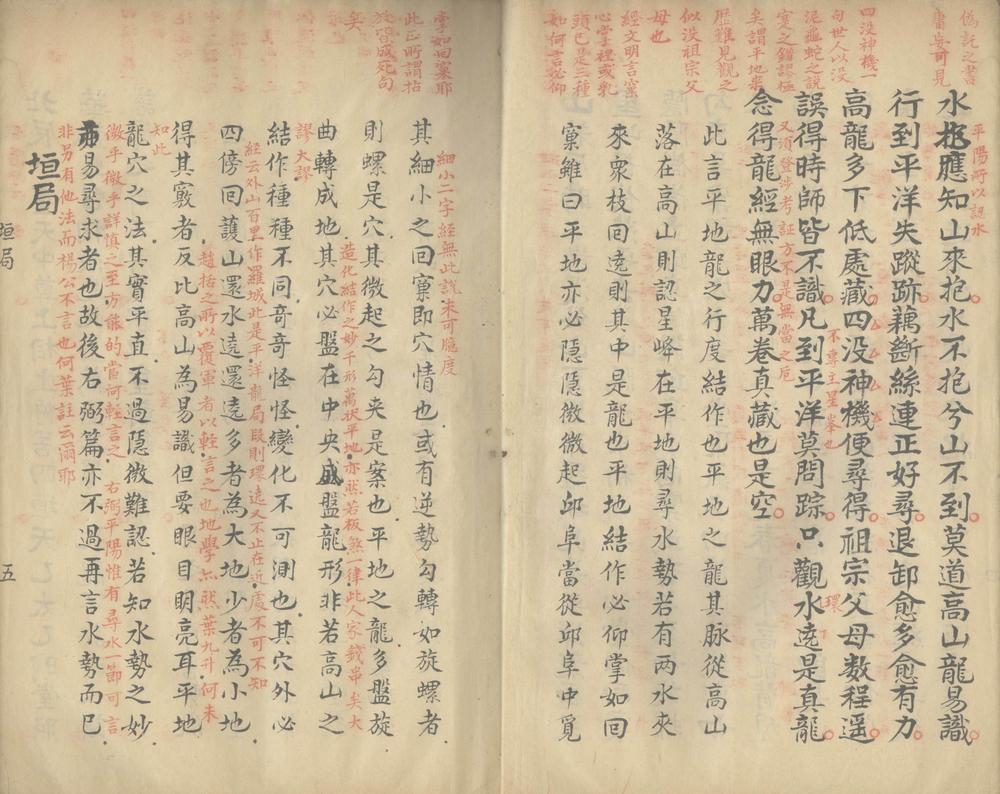 偽託之書
庸妄可見
四没神機一
句世人以没
泥龜蛇之說
寔之錯謬極
矣謂平地來
歷難見觀之
似没祖宗父
母也
經文明言窠
心掌裡或乳
頭已是三種
如何言必仰
平陽所以認水
水抱應知山來抱水不抱兮山不到莫道高山龍易識
行到平洋失蹤跡藕斷絲連正好尋退卸愈多愈有力
高龍多下低處藏四没神機便尋得祖宗父母数程遥
不専主星峯也
誤得時師皆不識凡到平洋莫問踪只觀水遶是真龍
環
又須登涉考証方不是無當之卮
念得龍經無眼力萬卷真藏也是空
此言平地龍之行度結作也平地之龍其脉從高山
落在高山則認星峰在平地則尋水勢若有兩水夾
來衆枝囘遶則其中是龍也平地結作必仰掌如囘
窠雖曰平地亦必隱隱微微起邱阜當從邱阜中覓
掌如囘窠耶
此正所謂拈
放皆成死句
矣
細小二字經無此說未可臆度
其細小之囘窠即穴情也或有逆勢勾轉如旋螺者
則螺是穴其微起之勾夾是案也平地之龍多盤旋
造化結作之妙千形萬状平地亦然若板煞一律此人家裁弔矣大
曲轉成地其穴必盤在中央盛盤龍形非若高山之
謬大謬
結作種種不同奇奇怪怪變化不可測也其穴外必
經云外山百里作羅城此是平洋龍局叚則環遶又不止在近處不可不知
四傍囘護山還水遶還遠多者為大地少者為小地
趙括之所以覆軍者以輕言之也地學亦然葉九升何未
得其竅者反比高山為易識但要眼目明亮耳平地
知此
龍穴之法其實平直不過隱微難認若知水勢之妙
微乎微乎詳慎之至方能的當何輕言之
右弼平陽惟有尋水一節可言
亦易尋求者也故後右弼篇亦不過再言水勢而已
非另有他法而楊公不言也何葉註云爾耶
垣局
垣局
五